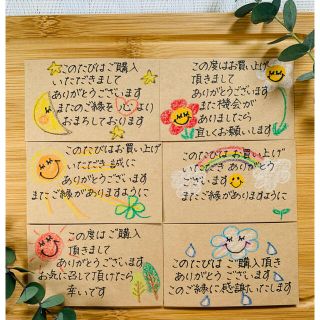 このたびはご購入
いただきまして
ありがとうございます
またのご縁を心より
おまちしております
この度はお買い上げ
頂きまして
ありがとうございます
また機会が
ありましたら
宜しくお願いします
このたびはお買い上げ
いただき誠に
ありがとうございます
またご縁がありますように
このたびはお買い上げ
いただき
ありがとう
ございます
またご縁がありますように
この度はご購入
頂きまして
ありがとうございます
お気に召して頂けたら
幸いです
このたびは ご購入頂き
ありがとう ございます
このご縁に感謝いたします